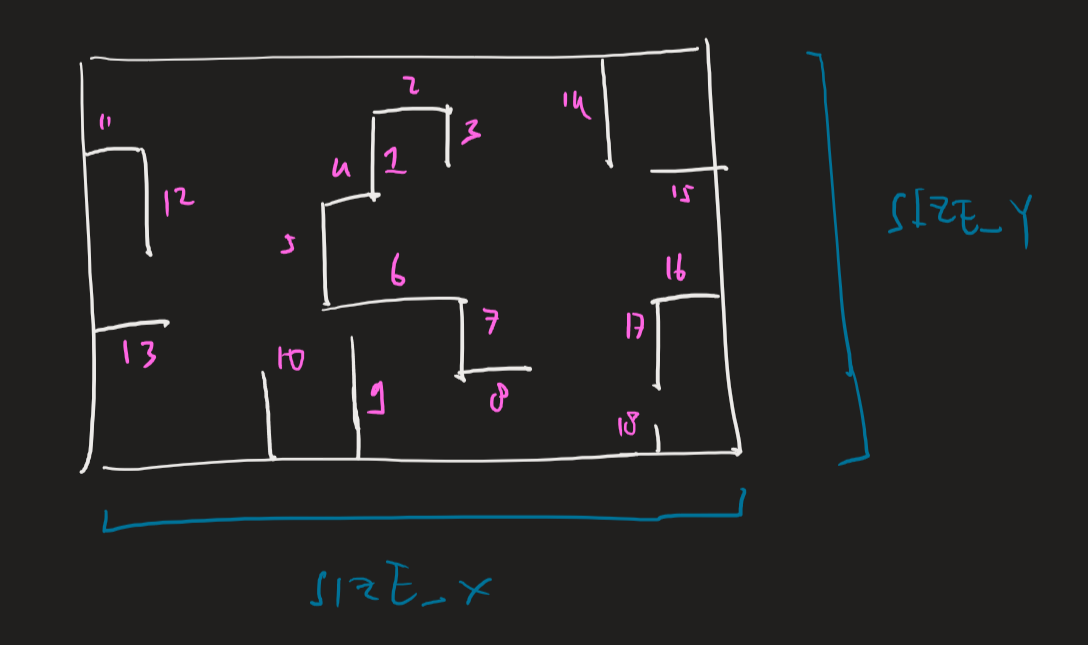 2
14
11
3
4
1
12
15
SIZE_Y
5
6
16
7
17
13
10
9
8
18
SIZE_X